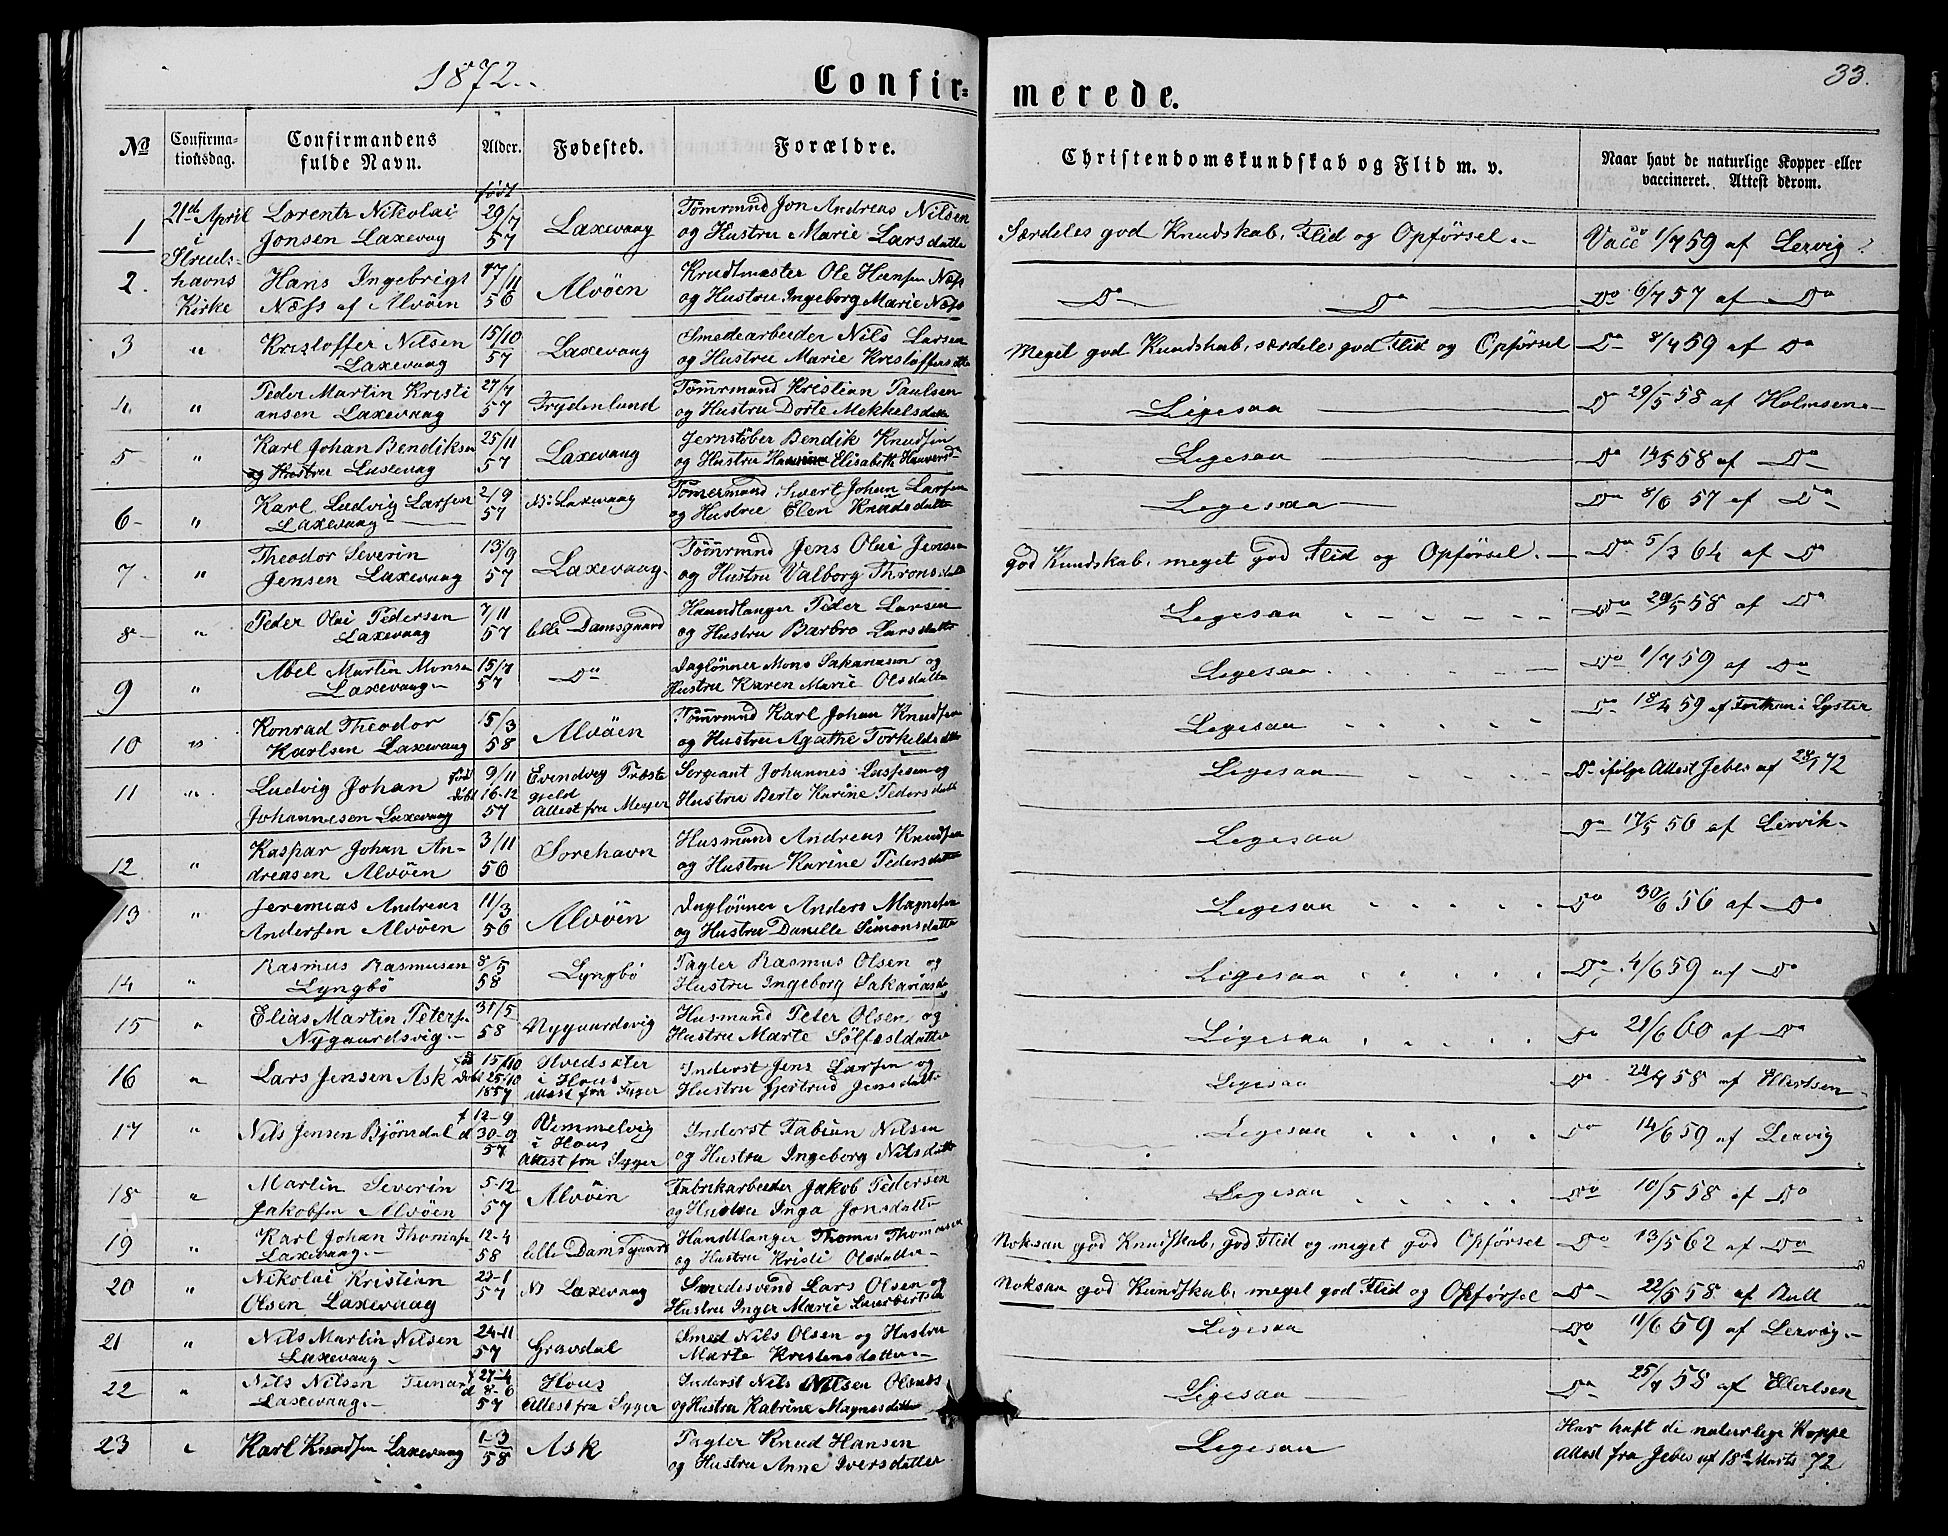 1872.
Confir=
merede.
33.
No
Confirma-
tionsdag.
Confirmandens
fulde Navn.
Alder.
Fødested.
Forældre.
Christendomskundskab og Flid m. v.
Naar havt de naturlige Kopper eller
vaccineret. Attest derom.
født
1 21de April Lorentz Nikolai 29/7 Laxevaag Tömrmnd Jon Andreas Nilsen
i Jonsen Laxevaag 57 og Hustru Marie Larsdatte
Særdeles god Kundskab, Flid og Opførsel. Vacc 1/7 59 af Lervig
2. Struds- Hans Ingebrigt 17/11 Alvöen Krudtmester Ole Hansen Næss
havns Kirke Næss af Alvöen 56 og Hustru Ingeborg Marie Næss
Do Do Do 6/7 57 af Do
3 " Kristoffer Nilsen 15/10 Laxevaag Smedearbeider Nils Larsen
Laxevaag 57 og Hustru Marie Kristoffersdtte
Meget god Kundskab, særdeles god Flid og Opførsel Do 8/7 59 af Do
4. " Peder Martin Kristi 27/7 Frydenlund Tömrmand Kristian Paulsen
ansen Laxevaag 57 og Hustru Dorte Mekkelsdatte
Ligesaa Do 29/5 58 af Holmsen
5 " Karl Johan Bendiksen 25/11 Laxevaag Jernstöber Bendik Knudsen
og Hustru Laxevaag 57 og Hustru Elisabeth
Ligesaa Do 14/5 58 af Do
6 " Karl Ludvig Larsen 2/9 N: Laxevaag Tömermand Sivert Johan Larsen
Laxevaag 57 og Hustru Elen Knudsdatte
Ligesaa Do 8/6 57 af Do
7. " Theodor Severin 13/9 Laxevaag Tömrmnd Jens Olai Jensen
Jensen Laxevaag 57 og Hustru Valborg Thronsdatte
god Kundskab, meget god Flid og Opførsel. Do 5/3 64 af Do
8 " Peder Olai Pedersen 7/11 lille Damsgaard Haandlanger Peder Larsen
Laxevaag 57 og Hustru Barbro Larsdatte
Ligesaa Do 29/5 58 af Do
9 " Abel Martin Monsen 15/7 Do Daglönner Mons Sakariasen og
Laxevaag 57 Hustru Karen Marie Olsdatte
Ligesaa Do 1/7 59 af Do
10 " Konrad Theodor 15/3 Alvöen Tömrmnd Karl Johan Knudsen
Karlsen Laxevaag 58 og Hustru Agathe Torkeldsdatte
Ligesaa Do 59 af i Lyster
11 " Ludvig Johan født 9/11 Evindvig Præste Sergeant Johannes og
Johannesen Laxevaag döbt 16-12 57 gjeld Attest fra Meyer Hustru Berte Karine Pedersdatte
Ligesaa Do ifølge Attest Jebes af 72
12 " Kaspar Johan An- 3/11 Sorehavn Husmand Andreas Knudsen
dreasen Alvöen 56 og Hustru Karine Pedersdatte
Ligesaa Do 17/5 56 af Lervik
13 " Jeremias Andreas 11/3 Alvöen Daglönner Anders Magnesen
Andersen Alvöen 56 og Hustru Danielle Simonsdatte
Ligesaa Do 30/6 56 af Do
14 " Rasmus Rasmusen 8/5 Lyngbö Pagter Rasmus Olsen og
Lyngbö 58 Hustru Ingeborg Sakariasd
Ligesaa Do 4/6 59 af Do
15 " Elias Martin Petersen 31/5 Nygaardsvig Husmand Peter Olsen og
Nygaardsvig 58 Hustru Marte Sölfastdatter
Ligesaa Do 21/6 60 af Do
16 " Lars Jensen Ask 15/10 döbt 25/10 1857 i Hous Attest fra Syger Inderst Jens Larsen og
Hustru Gjertrud Jensdatte
Ligesaa Do 24/7 58 af Ellertsen
17 " Nils Jensen Björndal f 12-9 d 30-9 57 Vemmelvig i Hous Attest fra Syger Inderst Fabian Nilsen
og Hustru Ingeborg Nilsdatte
Ligesaa Do 14/6 59 af Lervig
18 " Martin Severin 5-12 Alvöen Fabrikarbeider Jakob Pedersen
Jakobsen Alvöen 57 og Hustru Inga Jonsdatte
Ligesaa Do 10/5 58 af Do
19 " Karl Johan Thomasen 12-4 lille Damsgaard Handlanger Thomas Thomasen
Laxevaag 58 og Hustru Kristi Olsdatter
Noksaa god Kundskab, god Flid og meget god Opførsel Do 13/5 62 af Do
20 " Nikolai Kristian 23-1 N Laxevaag Smedesvend Lars Olsen og
Olsen Laxevaag 57 Hustru Inger Marie
Noksaa god Kundskab, meget god Flid og Opförsel Do 22/5 58 af Bull
21 " Nils Martin Nilsen 24-11 Gravdal Smed Nils Olsen og Hustru
Laxevaag 57 Marte Kristensdatter
Ligesaa Do 11/6 59 af Lervig
22 " Nils Nilsen f 27-4 Hous Inderst Nils Nilsen
Laxevaag d 8-6 57 Attest fra Syger og Hustru Katrine Magnesdatter
Ligesaa Do 25/7 58 af Ellertsen
23 " Karl Knudsen Laxevaag 1-3 58 Ask Pagter Knud Hansen
og Hustru Anne Iversdatter
Ligesaa Har haft de naturlige Koppe
Attest fra Jebes af 18de Marts 72